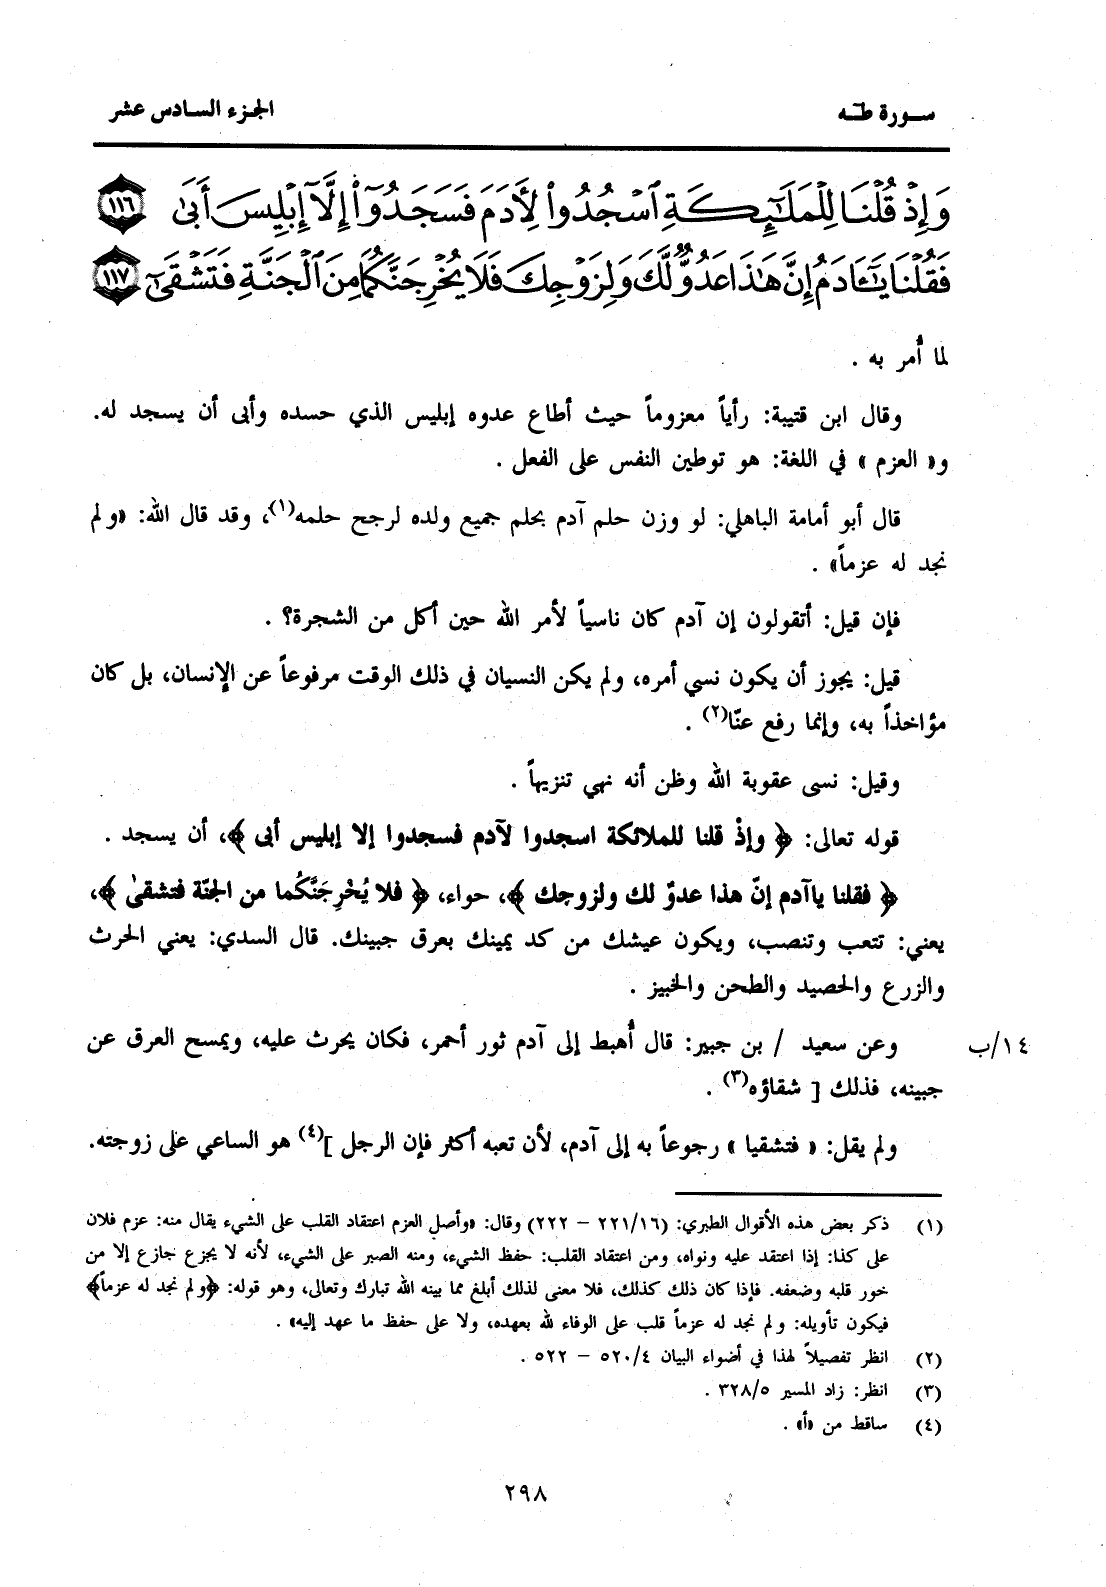 سورة طه
الجزء السادس عشر
وَإِذْ قُلْنَا لِلْمَلَٰٓئِكَةِ ٱسْجُدُوا۟ لِأٓدَمَ فَسَجَدُوٓا۟ إِلَّآ إِبْلِيسَ أَبَىٰ ١١٦
فَقُلْنَا يَٰٓـَٔادَمُ إِنَّ هَٰذَا عَدُوٌّ لَّكَ وَلِزَوْجِكَ فَلَا يُخْرِجَنَّكُمَا مِنَ ٱلْجَنَّةِ فَتَشْقَىٰٓ ١١٧
لما أُمر به .
وقال ابن قتيبة: رأياً معزوماً حيث أطاع عدوه إبليس الذي حسده وأبى أن يسجد له.
و« العزم » في اللغة: هو توطين النفس على الفعل .
قال أبو أمامة الباهلي: لو وزن حلم آدم بحلم جميع ولده لرجح حلمه(١)، وقد قال الله: «ولم
نجد له عزماً» .
فإن قيل: أتقولون إن آدم كان ناسياً لأمر الله حين أكل من الشجرة؟ .
قيل: يجوز أن يكون نسي أمره، ولم يكن النسيان في ذلك الوقت مرفوعاً عن الإنسان، بل كان
مؤاخذاً به، وإنما رفع عنّا(٢) .
وقيل: نسى عقوبة الله وظن أنه نهي تنزيهاً .
قوله تعالى: ﴿ وإذْ قلنا للملائكة اسجدوا لآدم فسجدوا إلا إبليس أبى ﴾، أن يسجد .
﴿ فقلنا ياآدم إنّ هذا عدوٌ لك ولزوجك ﴾، حواء، ﴿ فلا يُخْرِجَنَّكُما من الجنّة فتشقىٰ ﴾،
يعني: تتعب وتنصب، ويكون عيشك من كد يمينك بعرق جبينك. قال السدي: يعني الحرث
والزرع والحصيد والطحن والخبيز .
وعن سعيد / بن جبير: قال أُهبط إلى آدم ثور أحمر، فكان يحرث عليه، ويمسح العرق عن
١٤/ب
جبينه، فذلك [ شقاؤه(٣) .
ولم يقل: « فتشقيا » رجوعاً به إلى آدم، لأن تعبه أكثر فإن الرجل ](٤) هو الساعي على زوجته.
(١) ذكر بعض هذه الأقوال الطبري: (٢٢١/١٦ – ٢٢٢) وقال: «وأصل العزم اعتقاد القلب على الشيء يقال منه: عزم فلان
على كذا: إذا اعتقد عليه ونواه، ومن اعتقاد القلب: حفظ الشيء، ومنه الصبر على الشيء، لأنه لا يجزع جازع إلا من
خور قلبه وضعفه. فإذا كان ذلك كذلك، فلا معنى لذلك أبلغ مما بينه الله تبارك وتعالى، وهو قوله: ﴿ولم نجد له عزماً﴾
فيكون تأويله: ولم نجد له عزماً قلب على الوفاء لله بعهده، ولا على حفظ ما عهد إليه» .
(٢) انظر تفصيلاً لهذا في أضواء البيان ٥٢٠/٤ – ٥٢٢ .
(٣) انظر: زاد المسير ٣٢٨/٥ .
(٤) ساقط من «أ» .
٢٩٨